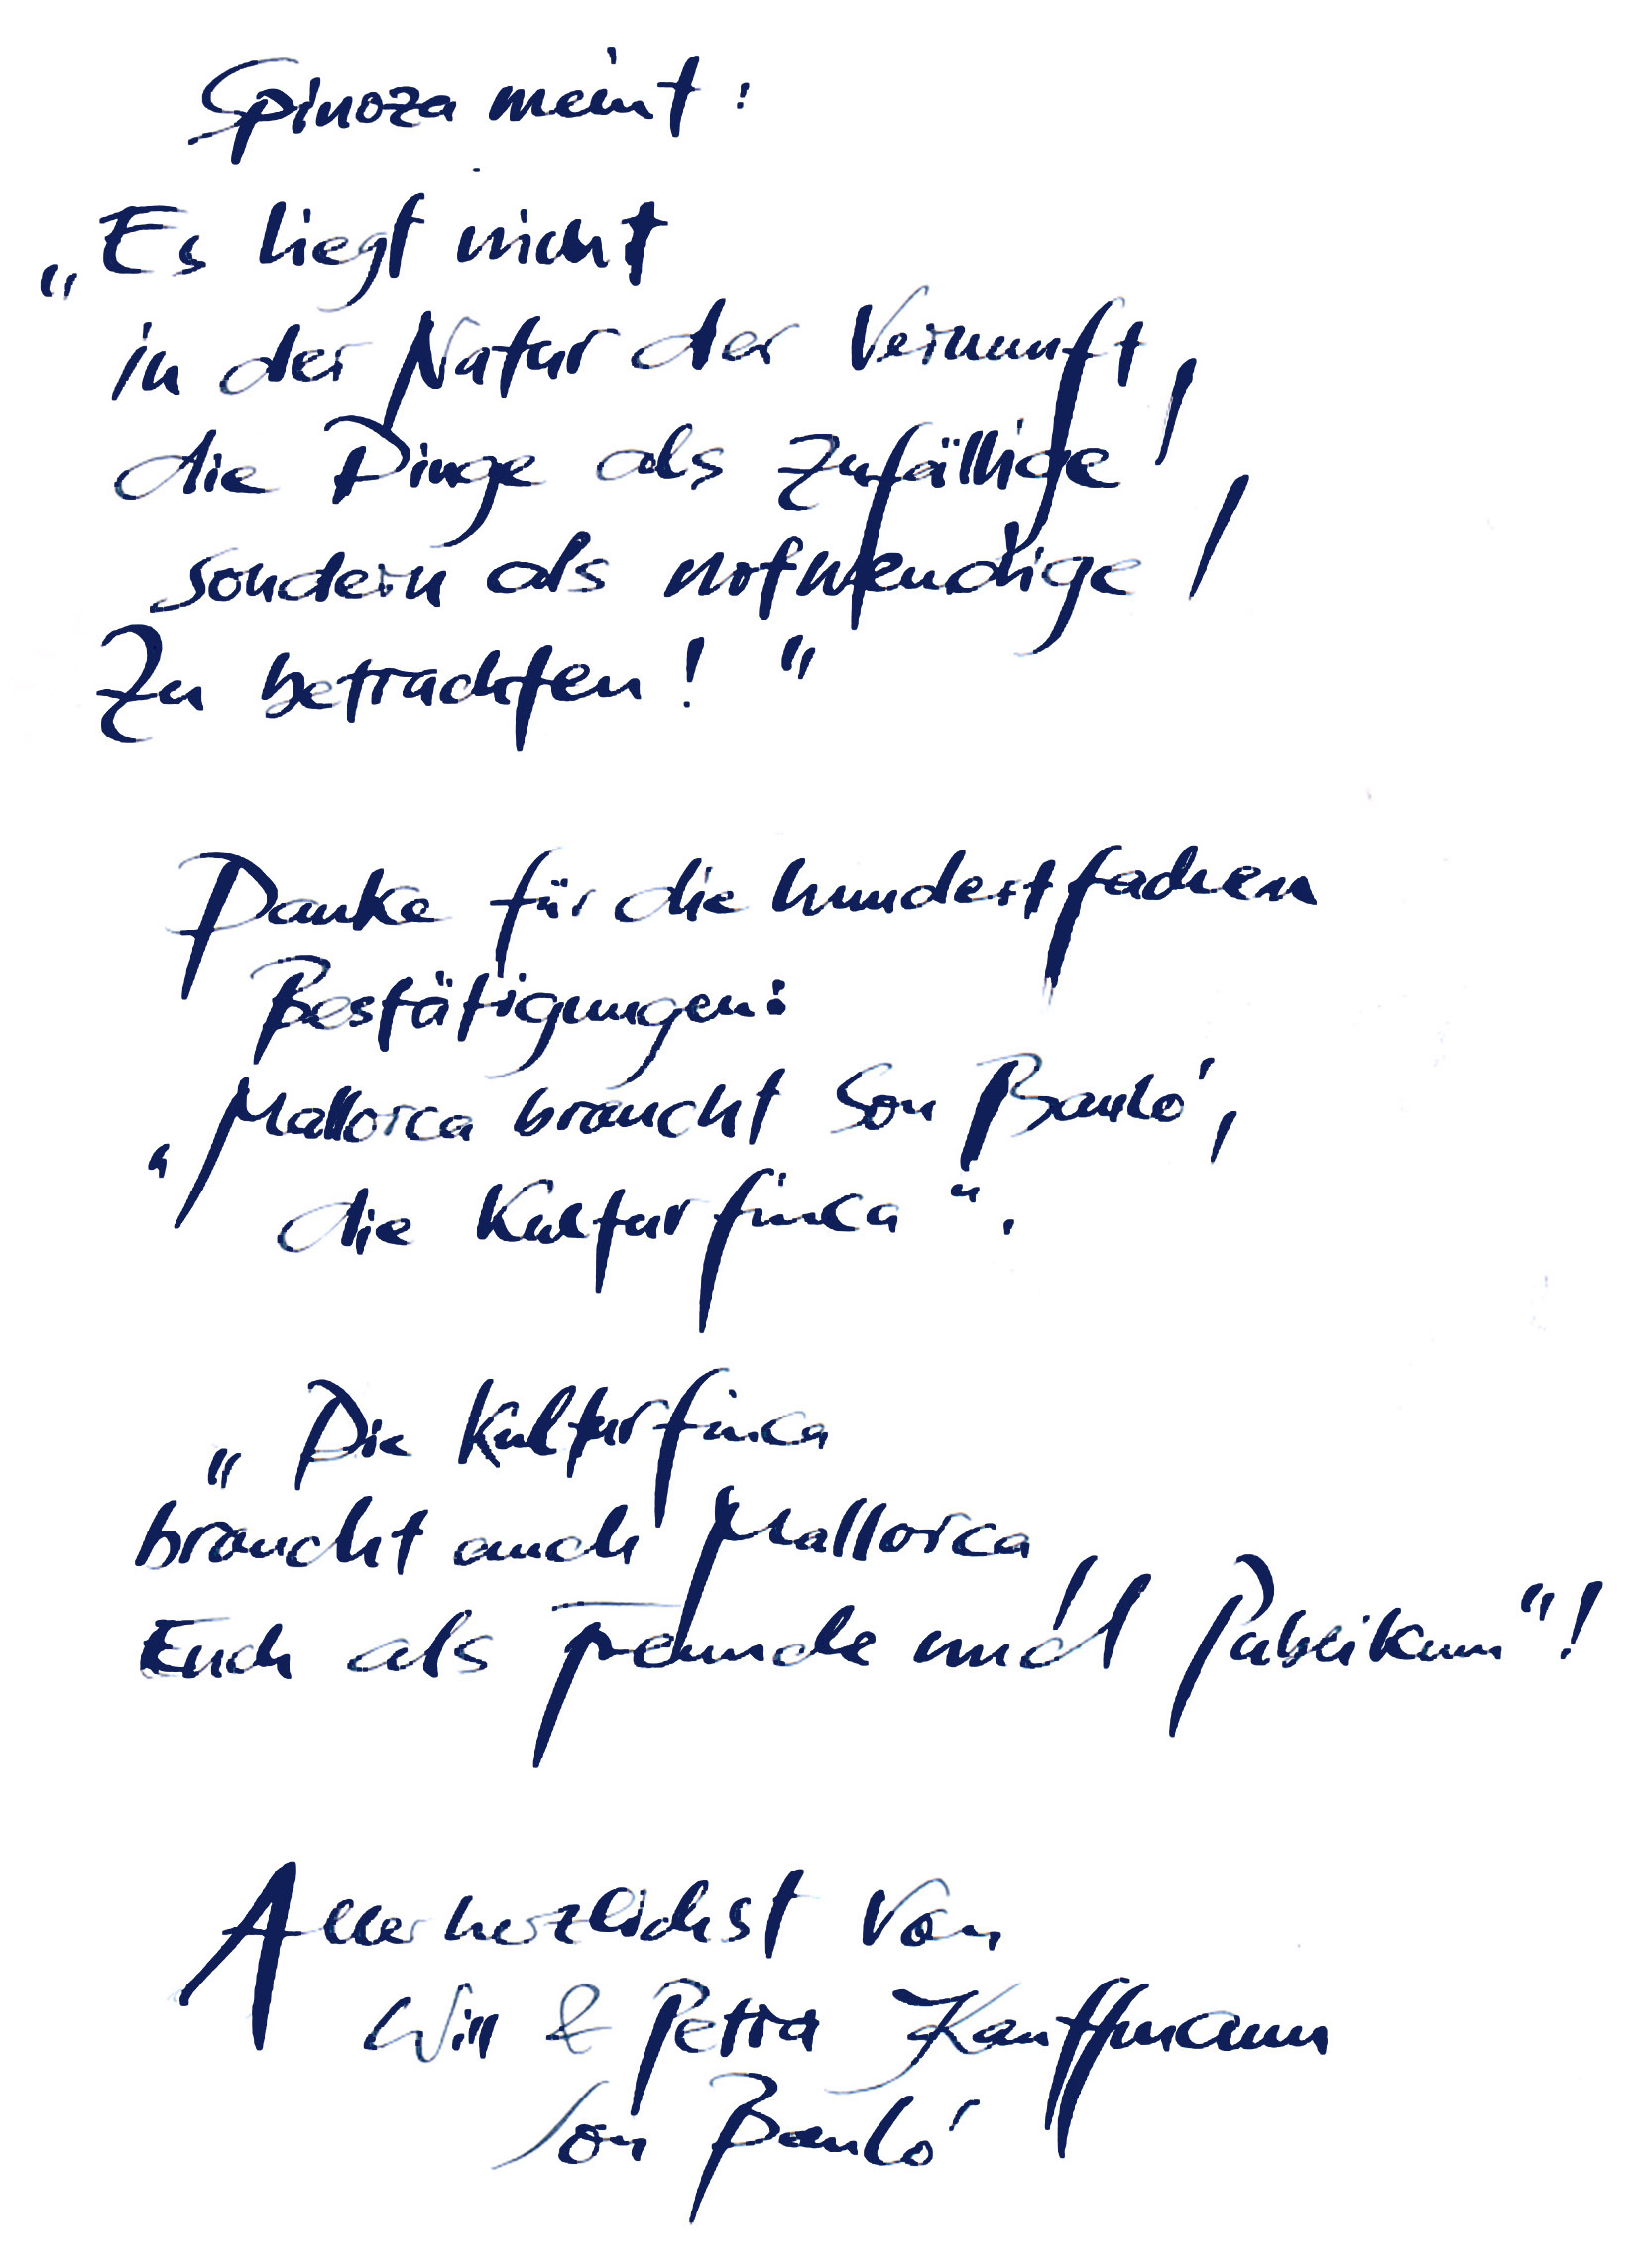 Spinoza meint:
„Es liegt nicht
in der Natur der Vernunft,
die Dinge als zufällige,
sondern als notwendige,
Zu betrachten!"
Danke für die hundertfachen
Bestätigungen:
„Mallorca braucht Son Bauló,
die Kulturfinca".
„Die Kulturfinca
braucht auch Mallorca
Euch als Freunde und Publikum"!
Allerherzlichst Von
Will & Petra Kauffmann
Son Bauló